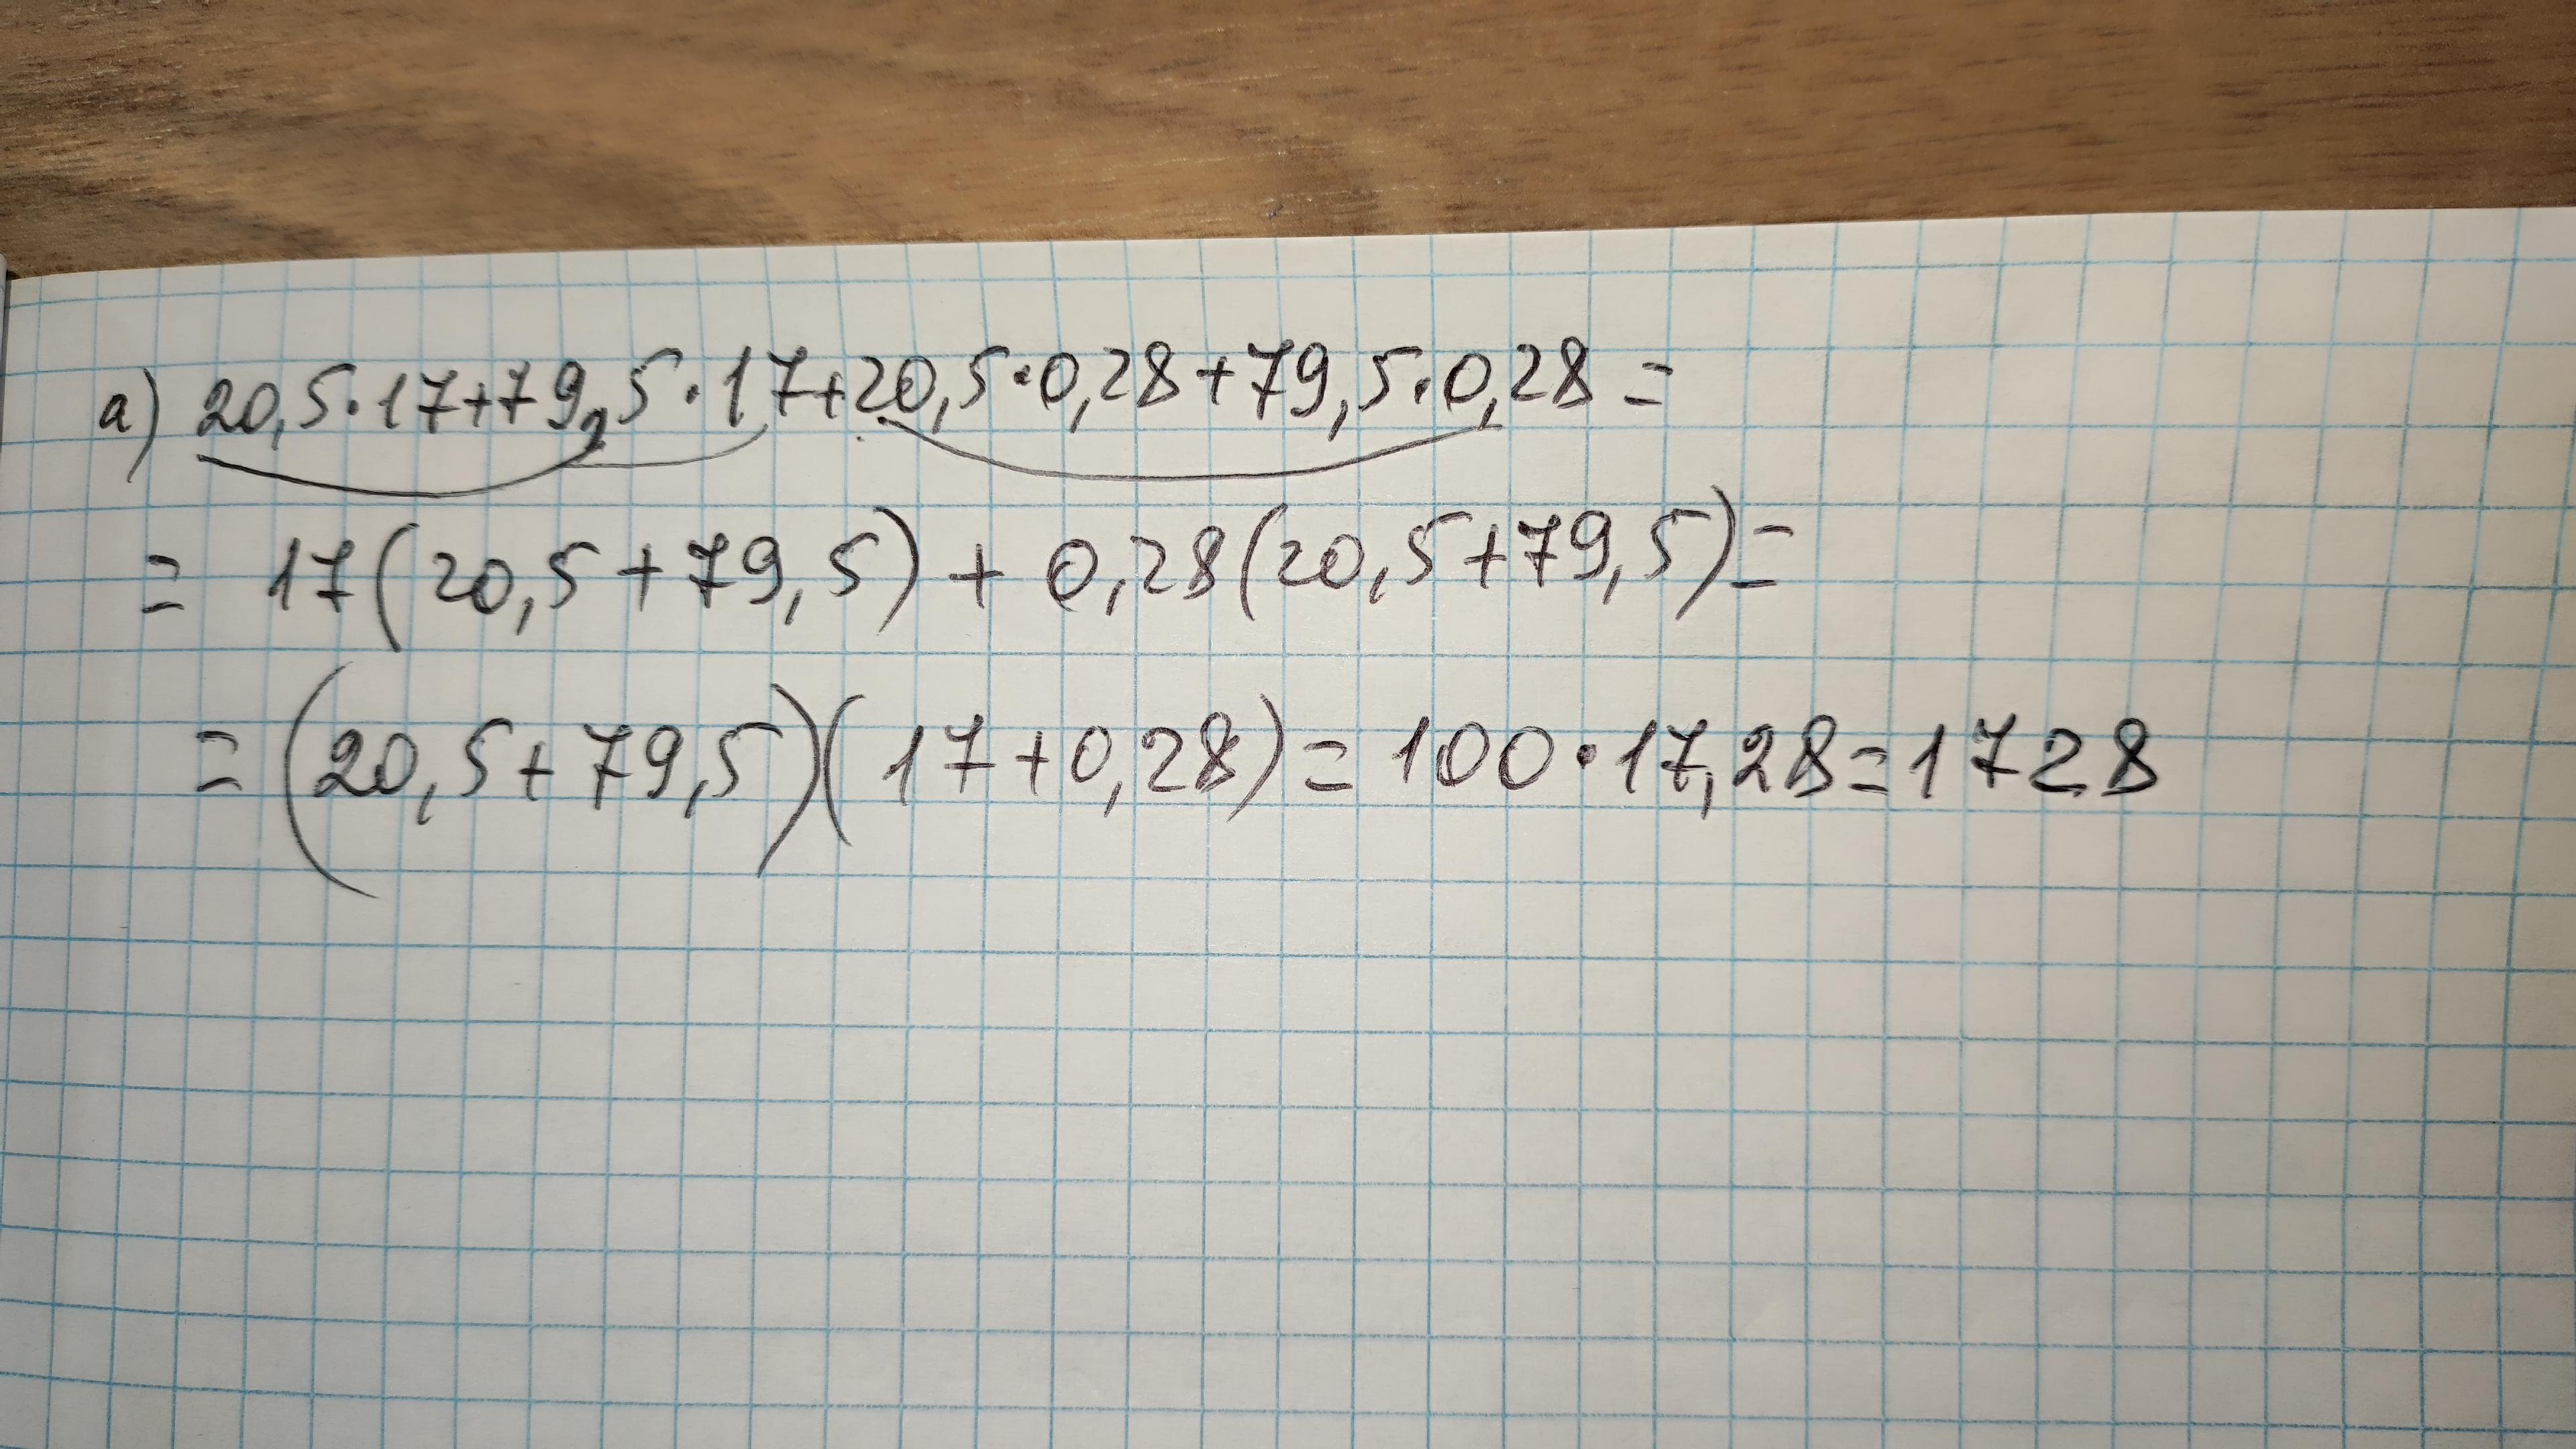 a) 20,5·17+79,5·17+20,5·0,28+79,5·0,28=
= 17(20,5+79,5)+0,28(20,5+79,5)=
=(20,5+79,5)(17+0,28)=100·17,28=1728